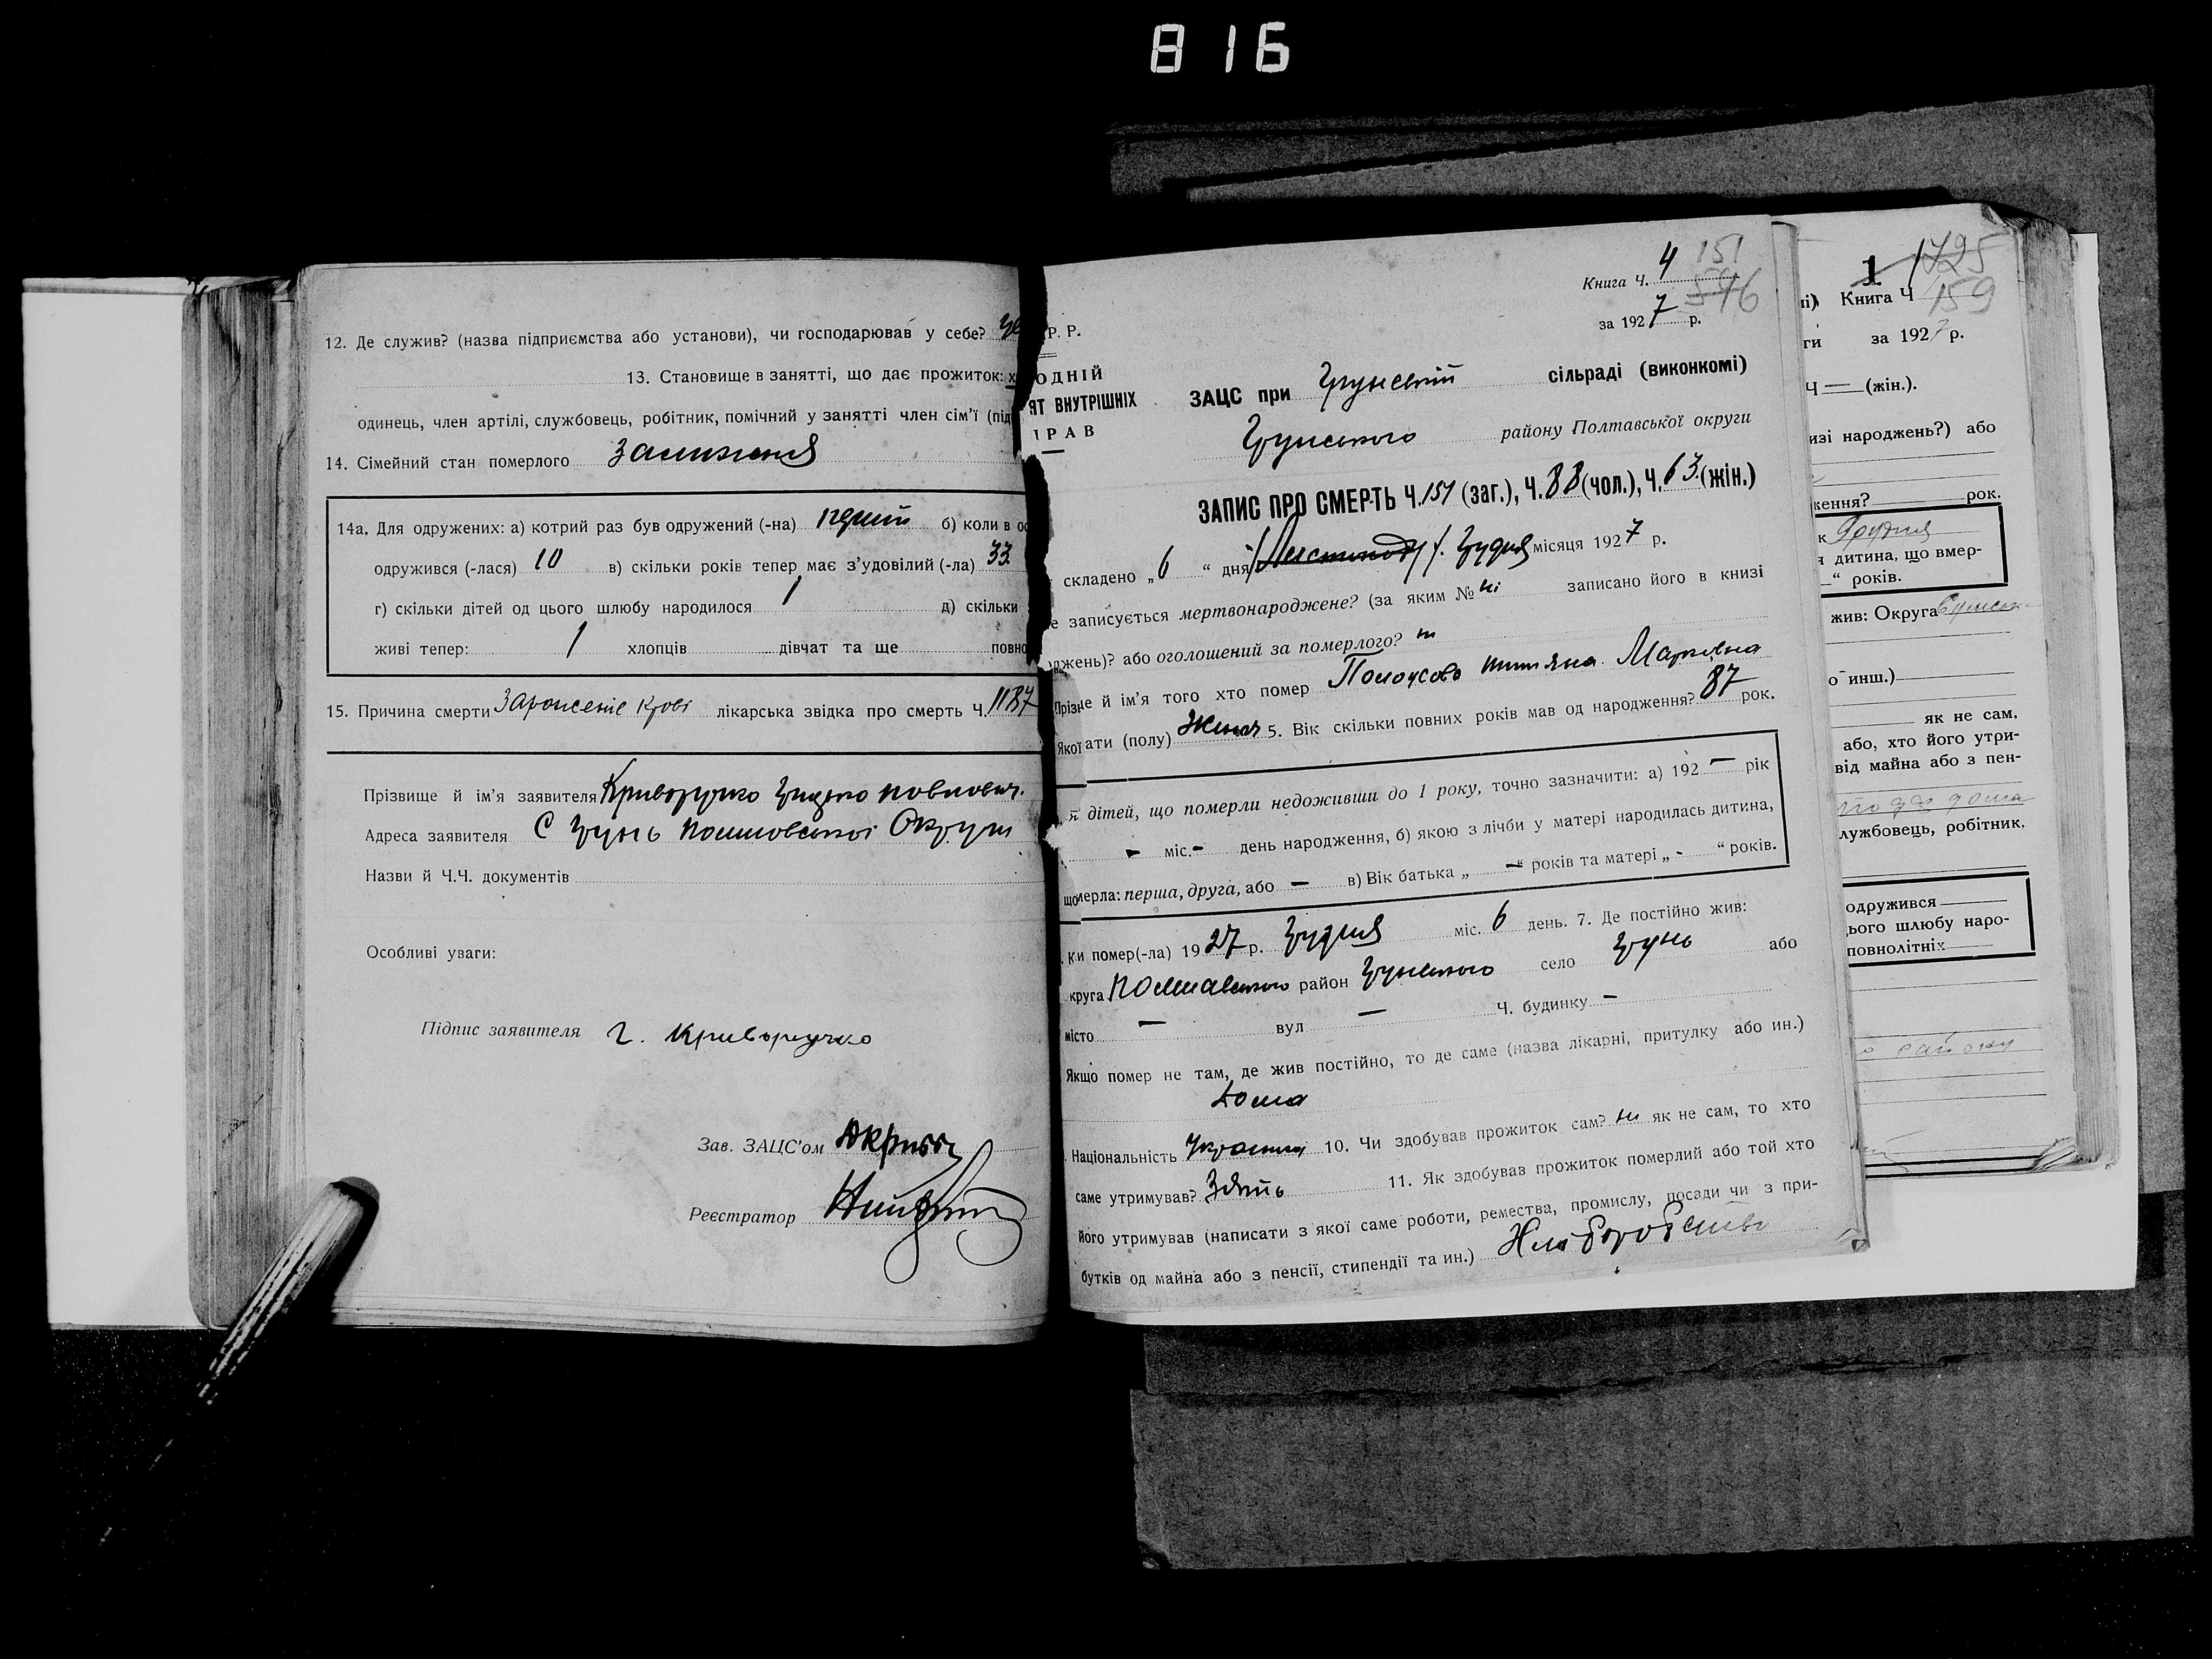 816
12. Де служив? (назва підприємства або установи), чи господарював у себе?
13. Становище в занятті, що дає прожиток: х
одинець, член артілі, службовець, робітник, помічний у занятті член сім'ї (під
14. Сімейний стан померлого Замижня
14а. Для одружених: а) котрий раз був одружений (-на) перший б) коли в ос
одружився (-лася) 10 в) скільки років тепер має з'удовілий (-ла) 33
г) скільки дітей од цього шлюбу народилося 1 д) скільки
живі тепер: 1 хлопців дівчат та ще повно
15. Причина смерти Зараженіе крові лікарська звідка про смерть Ч. 1187
Прізвище й ім'я заявителя Криворучко Грицько Повлович.
Адреса заявителя С Грунь Полтовської Округи
Назви й Ч.Ч. документів
Особливі уваги:
Підпис заявителя Г. Криворучко
Зав. ЗАЦС'ом
Реєстратор
Книга Ч. 4 151
546
за 1927 р.
Р. Р.
ОДНІЙ
ЯТ ВНУТРІШНІХ
ПРАВ
ЗАЦС при Грунській сільраді (виконкомі)
Грунського району Полтавської округи
ЗАПИС ПРО СМЕРТЬ Ч. 151 (заг.), Ч. 88 (чол.), Ч. 63 (жін.)
складено „6“ дня /Листопада/. Грудня місяця 1927 р.
е записується мертвонароджене? (за яким № ні записано його в книзі
джень)? або оголошений за померлого? ні
Прізвe й ім'я того хто помер Титяна Марківна
Якої ати (полу) Жіноч 5. Вік скільки повних років мав од народження? 87 рок.
я дітей, що померли недоживши до 1 року, точно зазначити: а) 192 — рік
— міс. - день народження, б) якою з лічби у матері народилась дитина,
що мерла: перша, друга, або — в) Вік батька „ —“ років та матері „ - “ років.
ки помер(-ла) 1927 р. Грудня міс. 6 день. 7. Де постійно жив:
круга Полтавського район Грунського село Грунь або
місто — вул — Ч. будинку —
Якщо помер не там, де жив постійно, то де саме (назва лікарні, притулку або ин.)
Дома
Національність Україниц 10. Чи здобував прожиток сам? ні як не сам, то хто
саме утримував? Зять 11. Як здобував прожиток померлий або той хто
його утримував (написати з якої саме роботи, ремества, промислу, посади чи з при-
бутків од майна або з пенсії, стипендії та ин.) Хліборобство
1 1725
і) Книга Ч 159
ги за 1927 р.
Ч — (жін.).
изі народжень?) або
ження? рок.
к Грудня
я дитина, що вмер-
—“ років.
жив: Округа
о инш.)
як не сам,
або, хто його утри-
від майна або з пен-
лужбовець, робітник,
одружився
ього шлюбу наро-
повнолітніх
району